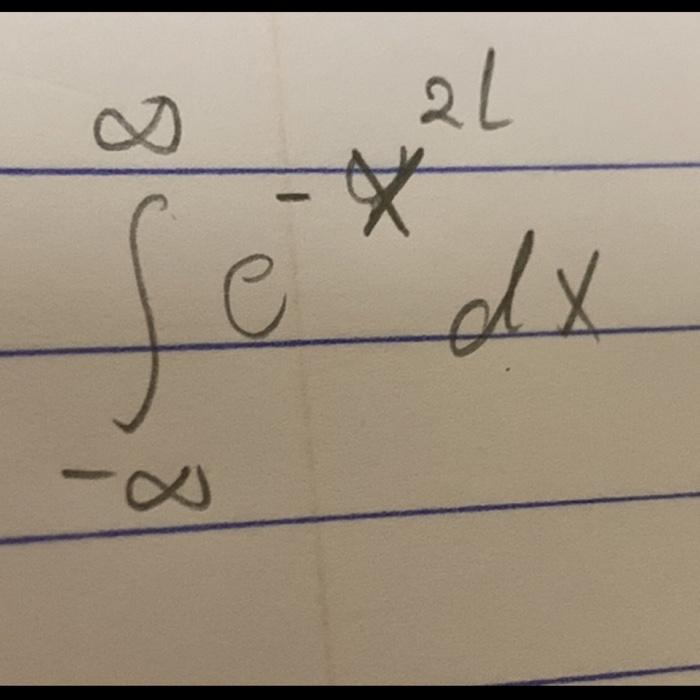 ∫_{-∞}^{∞} e^{-x^{2l}} dx